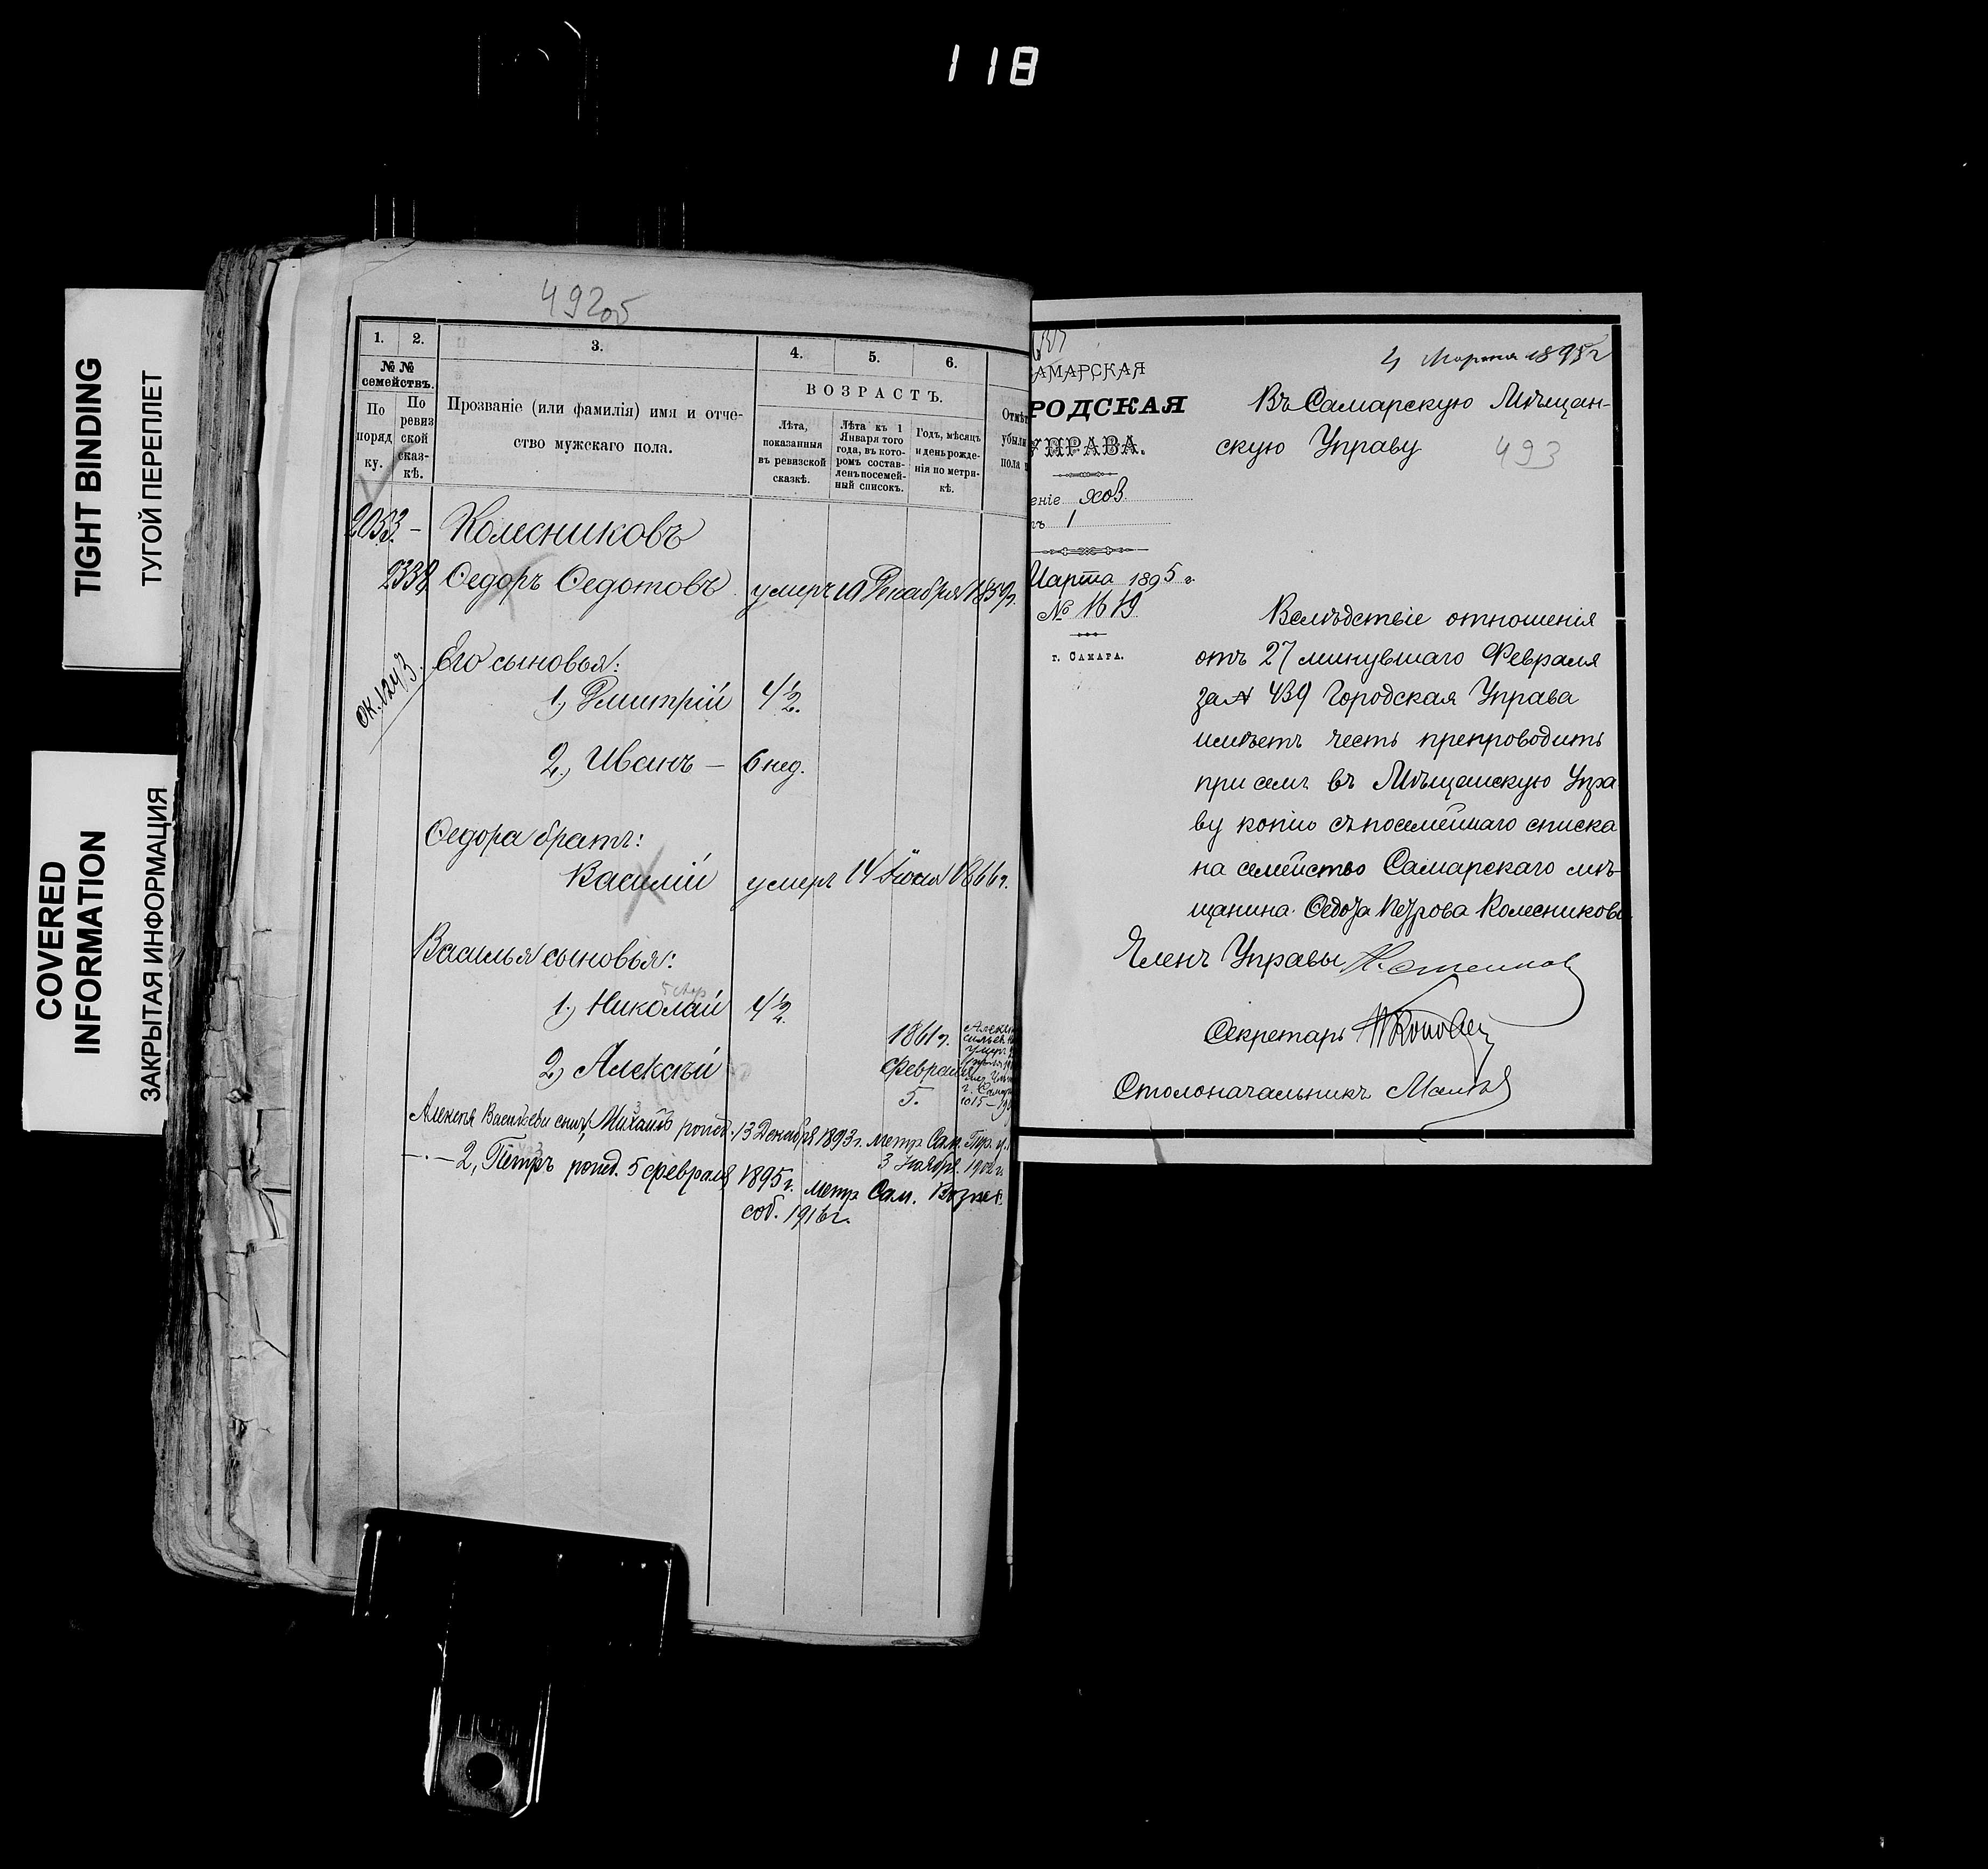 118
TIGHT BINDING
ТУГОЙ ПЕРЕПЛЕТ
COVERED
INFORMATION
ЗАКРЫТАЯ ИНФОРМАЦИЯ
492об
1. 2. 3. 4. 5. 6.
№ №
семействъ.
По
поряд
ку.
По
ревиз
ской
сказ-
кѣ.
Прозваніе (или фамилія) имя и отче-
ство мужскаго пола.
ВОЗРАСТЪ.
Лѣта,
показанныя
въ ревизской
сказкѣ.
Лѣта къ 1
Января того
года, въ кото-
ромъ состав-
ленъ посемей-
ный списокъ.
Годъ, мѣсяцъ
и день рожде-
нія по метри-
кѣ.
Отмѣт
убыли
пола
2053. – Колесниковъ
2338 Ѳедоръ Ѳедотовъ умеръ 10 Декабря 1859г.
Его сыновья:
1, Дмитрій 4½
2, Иванъ – 6 нед.
Ѳедора братъ:
Василій умеръ 14 Іюня 1866г.
Василья сыновья:
1, Николай 4½
2, Алексѣй 1861г.
Февраля
5.
Алексѣя Васильева сынъ, Михаилъ рожд. 13 Декабря 1893г. метр. Сам.
3 Ноября 1902г.
– · – 2, Петръ рожд. 5 февраля 1895г. метр Сам. Вознес.
соб. 1916г.
САМАРСКАЯ
РОДСКАЯ
УПРАВА.
еніе хоз.
1
Марта 1895 г.
№ 1619
г. САМАРА.
4 Марта 1895г
Въ Самарскую Мѣщан-
скую Управу
493
Вслѣдствіе отношенія
отъ 27 минувшаго Февраля
за № 439 Городская Управа
имѣетъ честь препроводить
при семъ въ Мѣщанскую Упра
ву копію съ посемейнаго списка
на семейство Самарскаго мѣ-
щанина Ѳедота Петрова Колесникова
Членъ Управы
Секретарь
Столоначальникъ